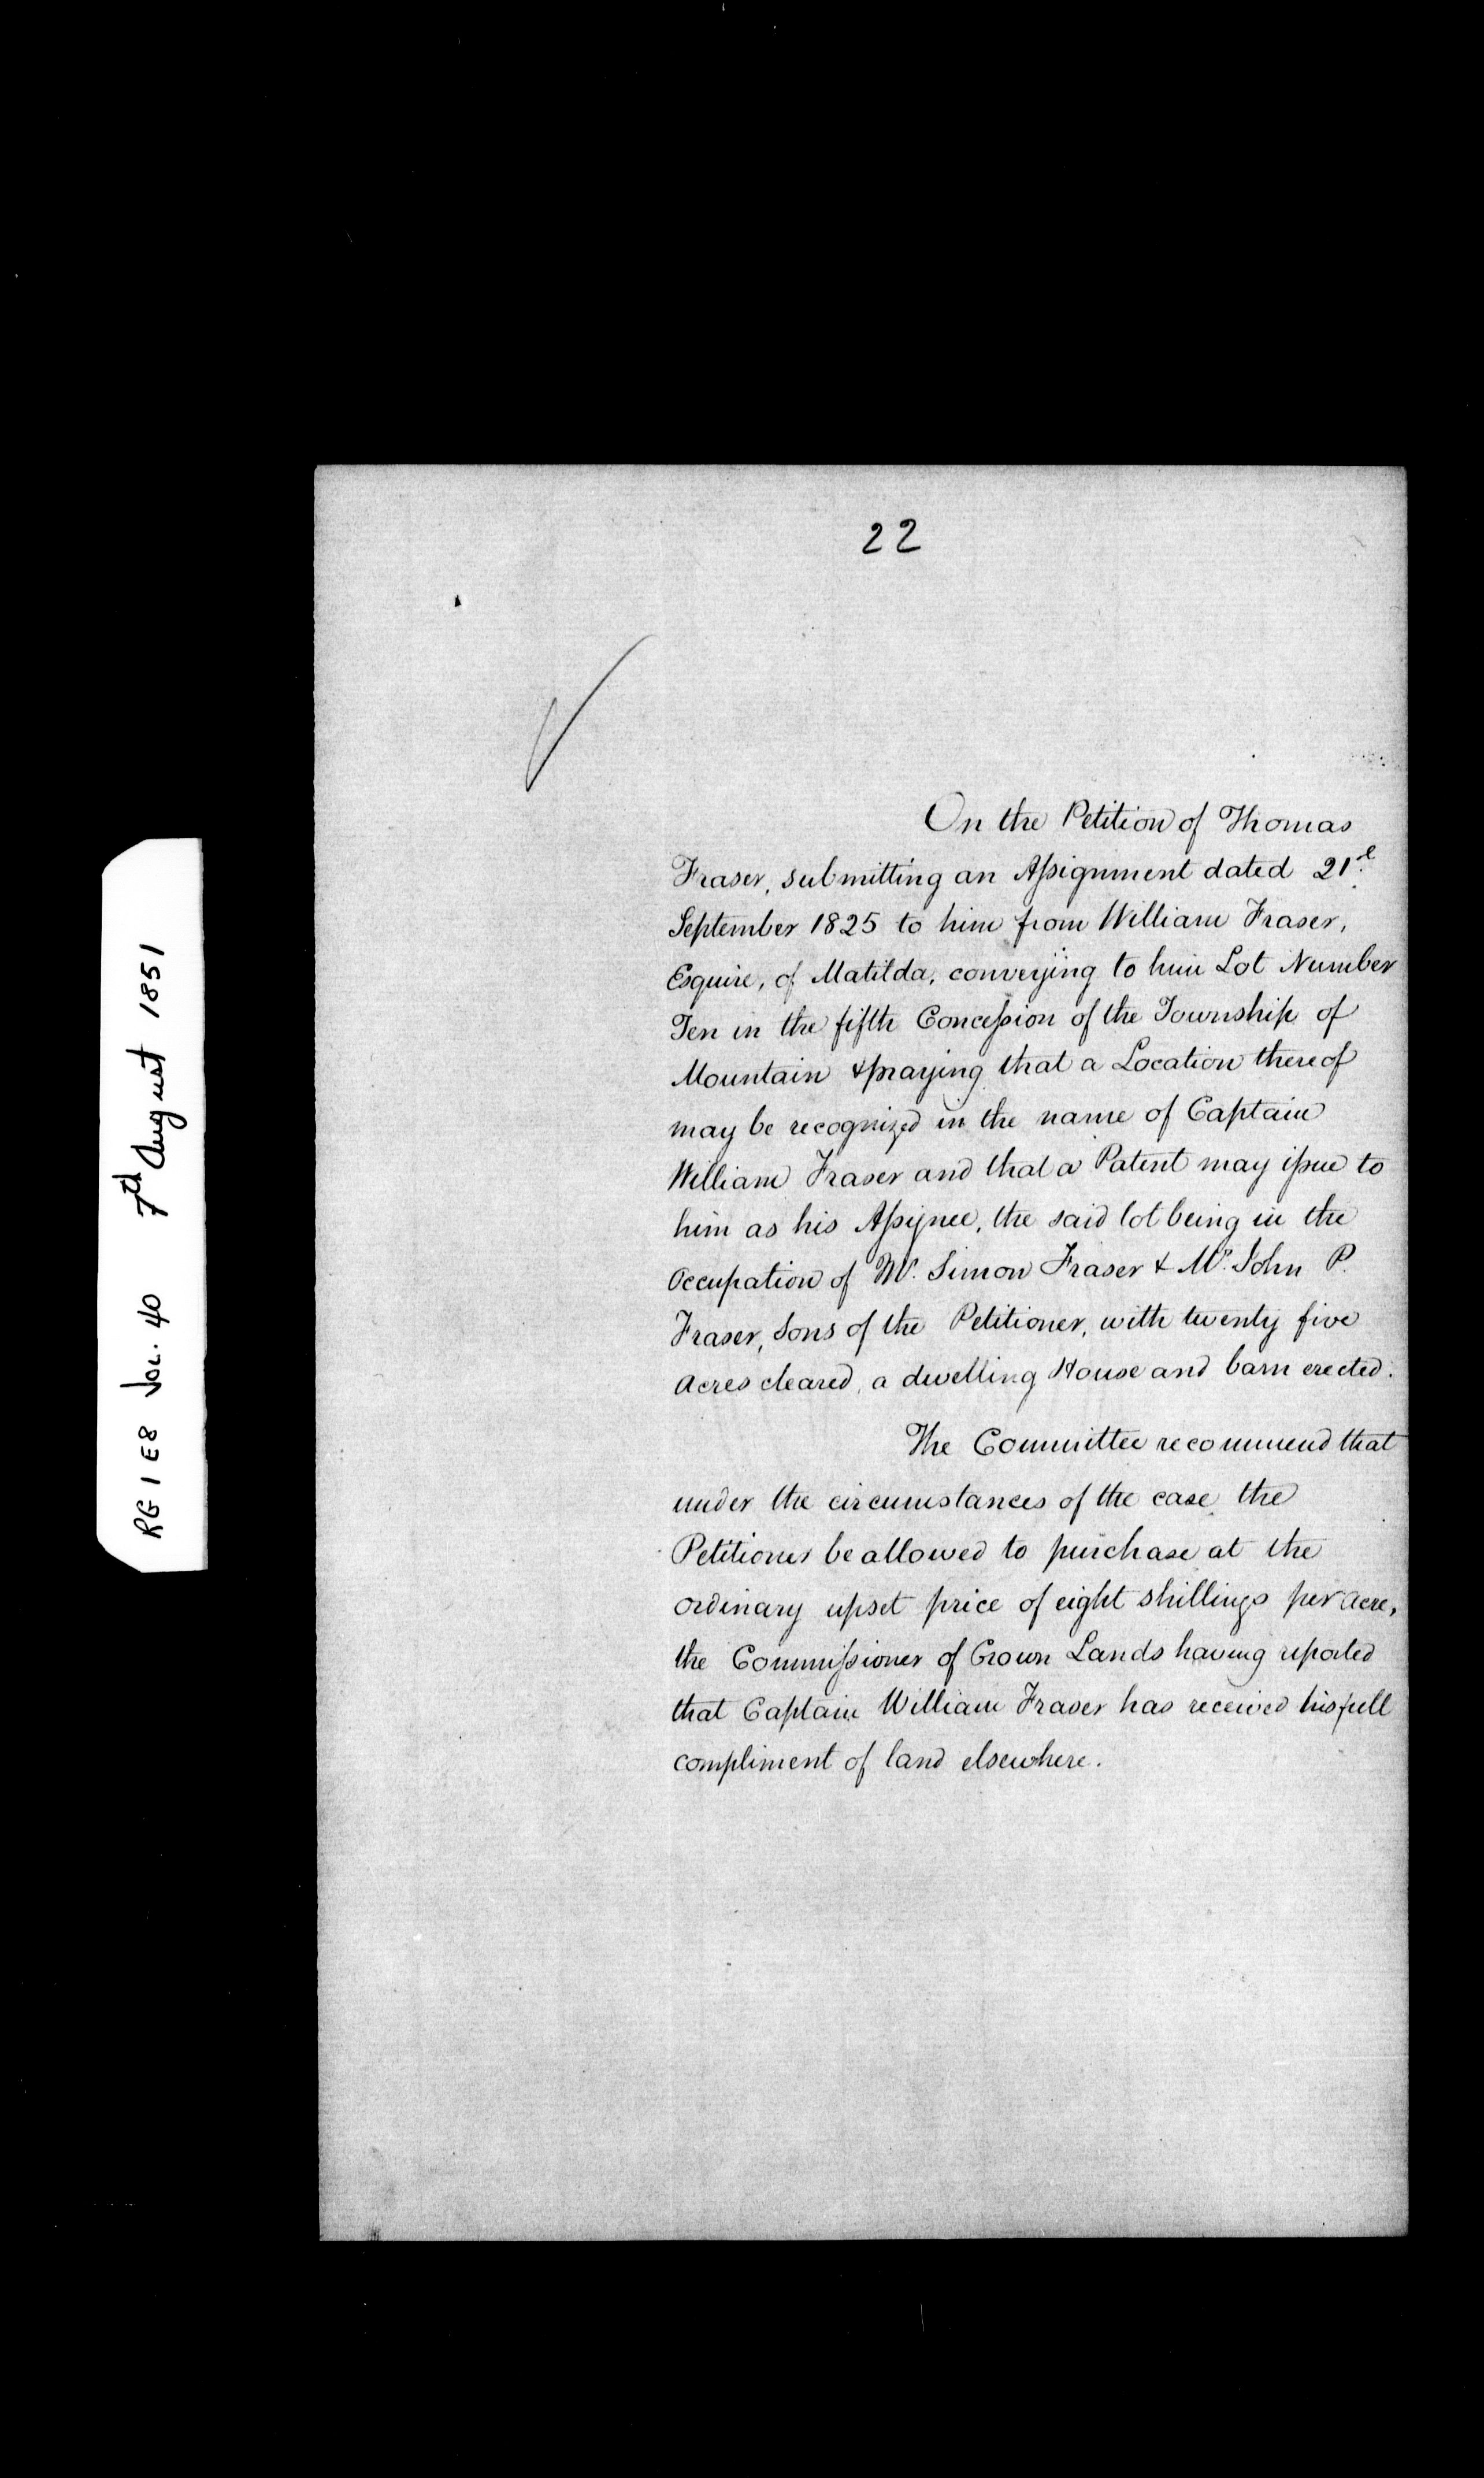 22
On the Petition of Thomas
Fraser, submitting an Assignment dated 21st
September 1825 to him from William Fraser,
Esquire, of Matilda, conveying to him Lot Number
Ten in the fifth Concession of the Township of
Mountain & praying that a Location thereof
may be recognized in the name of Captain
William Fraser and that a Patent may issue to
him as his Assignee, the said lot being in the
Occupation of Mr. Simon Fraser & Mr. John P.
Fraser, Sons of the Petitioner, with twenty five
Acres cleared, a dwelling House and barn erected.
The Committee recommend that
under the circumstances of the case, the
Petitioner be allowed to purchase at the
ordinary upset price of eight shillings per Acre,
the Commissioner of Crown Lands having reported
that Captain William Fraser has received his full
compliment of land elsewhere.
RG 1 E8 Vol. 40 7th August 1851